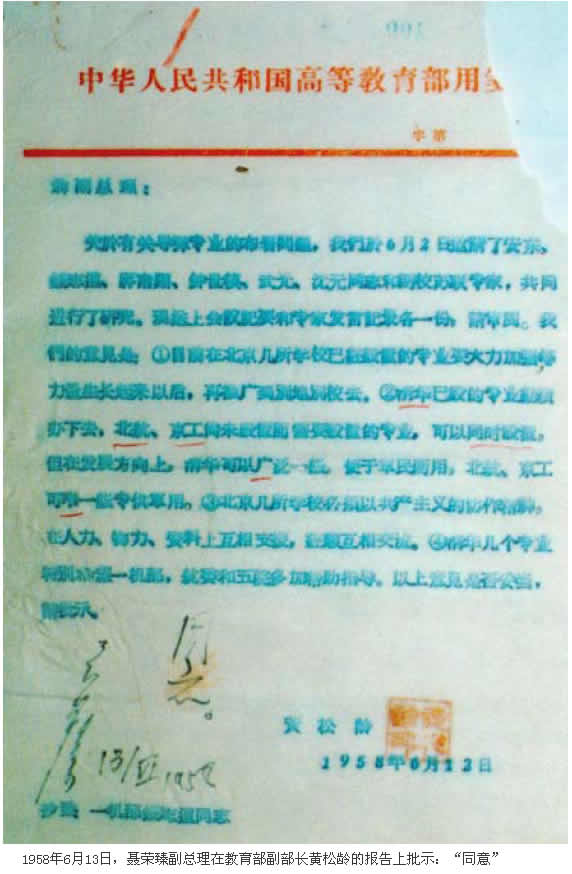 中华人民共和国高等教育部用
字第
副总理：
关於有关导弹专业的布署问题，我們於6月2日邀請了安东、
武光、沈元同志和两校苏联专家，共同
进行了研究。现送上会议紀要和专家发言記录各一份，請审閱。我
們的意見是：①目前在北京几所学校已經設置的专业要大力加强等
力量生长起来以后，再推广到別地別校去。②清华已設的专业繼續
办下去，北航、京工尚未設置而需要設置的专业，可以同时設置。
但在发展方向上，清华可以广泛一些，便于軍民兩用，北航、京工
可 一些专供軍用。③北京几所学校必須以共产主义的协作精神，
在人力、物力、资料上互相支援，經驗互相交流。④清华几个专业
特別 一机部、 委和五院多加帮助指导。以上意見是否妥当，
請批示。
同意。
聂荣臻
13/Ⅵ 1958
黄松龄
1958年6月13日
抄送：一机部 同志
1958年6月13日，聂荣臻副总理在教育部副部长黄松龄的报告上批示：“同意”